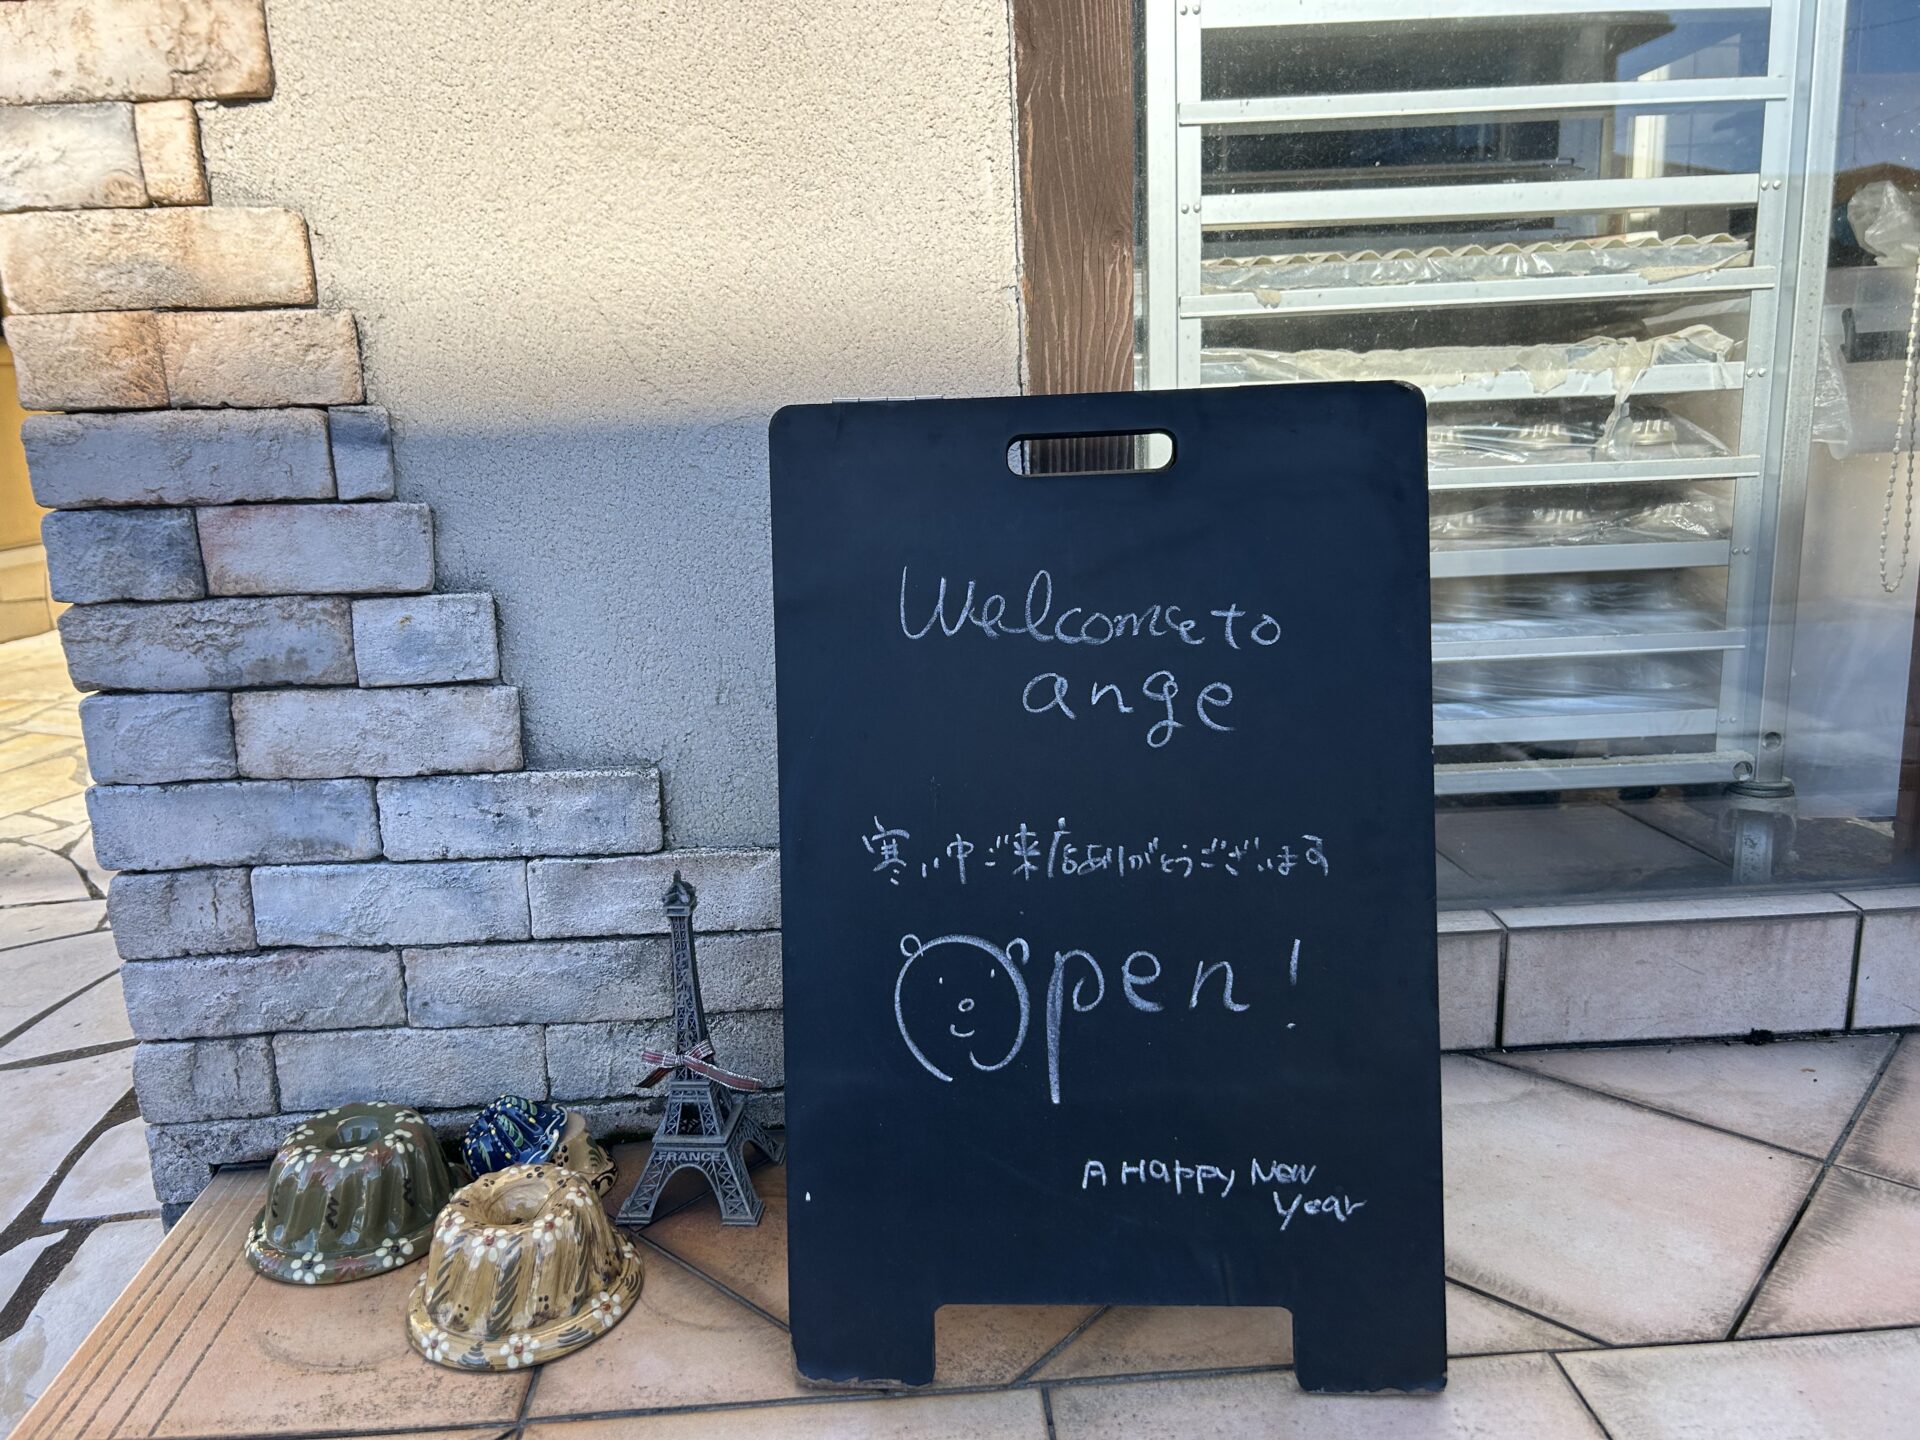 Welcome to
ange
寒い中ご来店ありがとうございます
Open!
A Happy New
Year
FRANCE